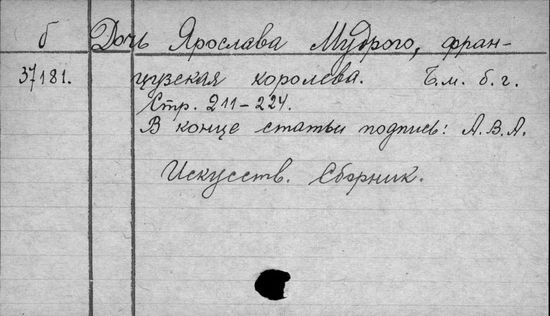 б Дочь Ярослава Мудрого, фран-
37181. цузская королева. Б.м. б.г.
Стр. 211-224.
В конце статьи подпись: А.В.А.
Искусств. Сборник.